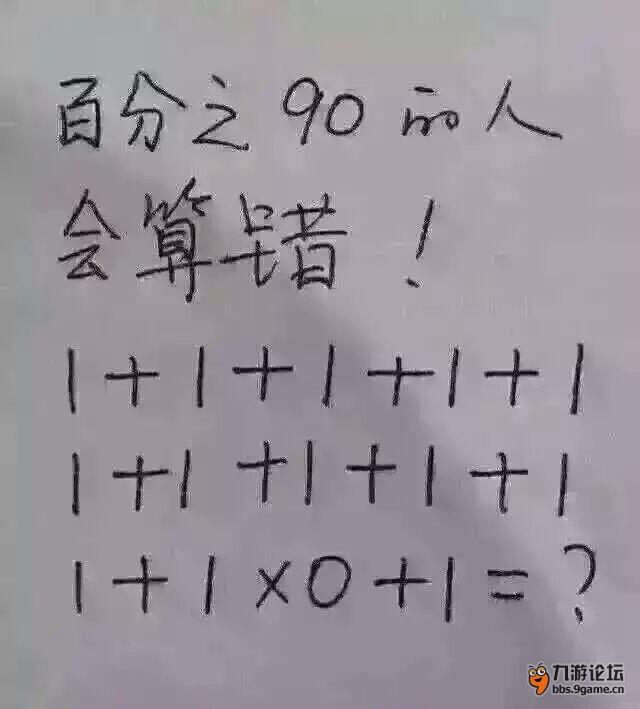 百分之90的人
会算错!
1+1+1+1+1
1+1+1+1+1
1+1×0+1=?
九游论坛
bbs.9game.cn